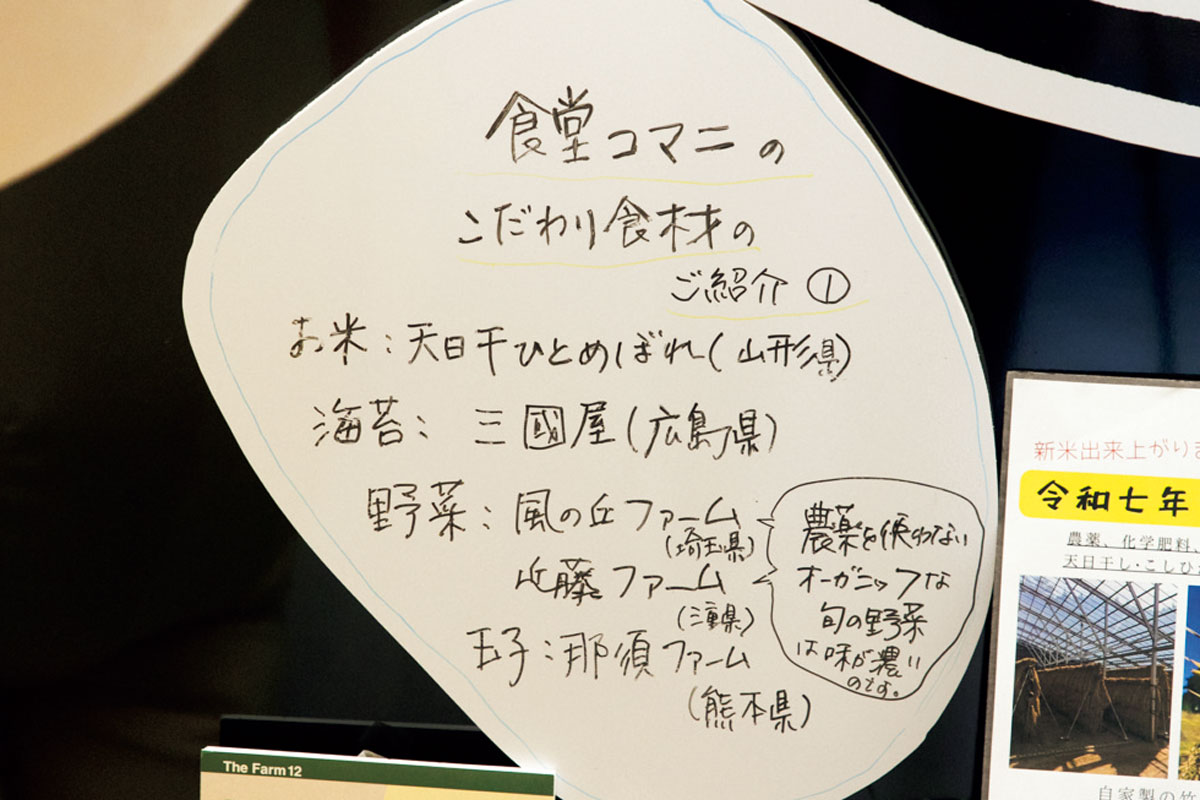 食堂コマニの
こだわり食材の
ご紹介 ①
お米：天日干ひとめぼれ（山形県）
海苔： 三國屋（広島県）
野菜：風の丘ファーム
（埼玉県）
近藤ファーム
（三重県）
玉子：那須ファーム
（熊本県）
農薬を使わない
オーガニックな
旬の野菜
は味が濃い
のです。
新米出来上がりま
令和七年
農薬、化学肥料、
天日干し・こしひか
自家製の竹
The Farm 12